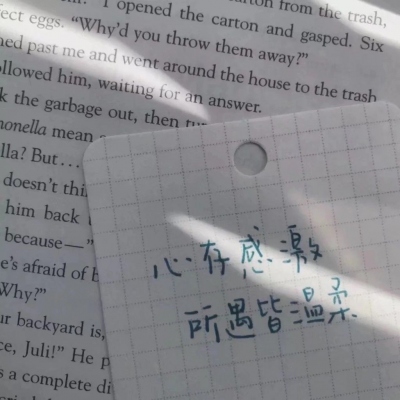 I opened the carton and gasped. Six
"Why'd you throw them away?"
past me and went around the house to the trash
him, waiting for an answer.
the garbage out, then
mean
But...
doesn't
him back
because—"
afraid of
Why?"
backyard is,
Juli!" He
a complete
心存感激
所遇皆温柔